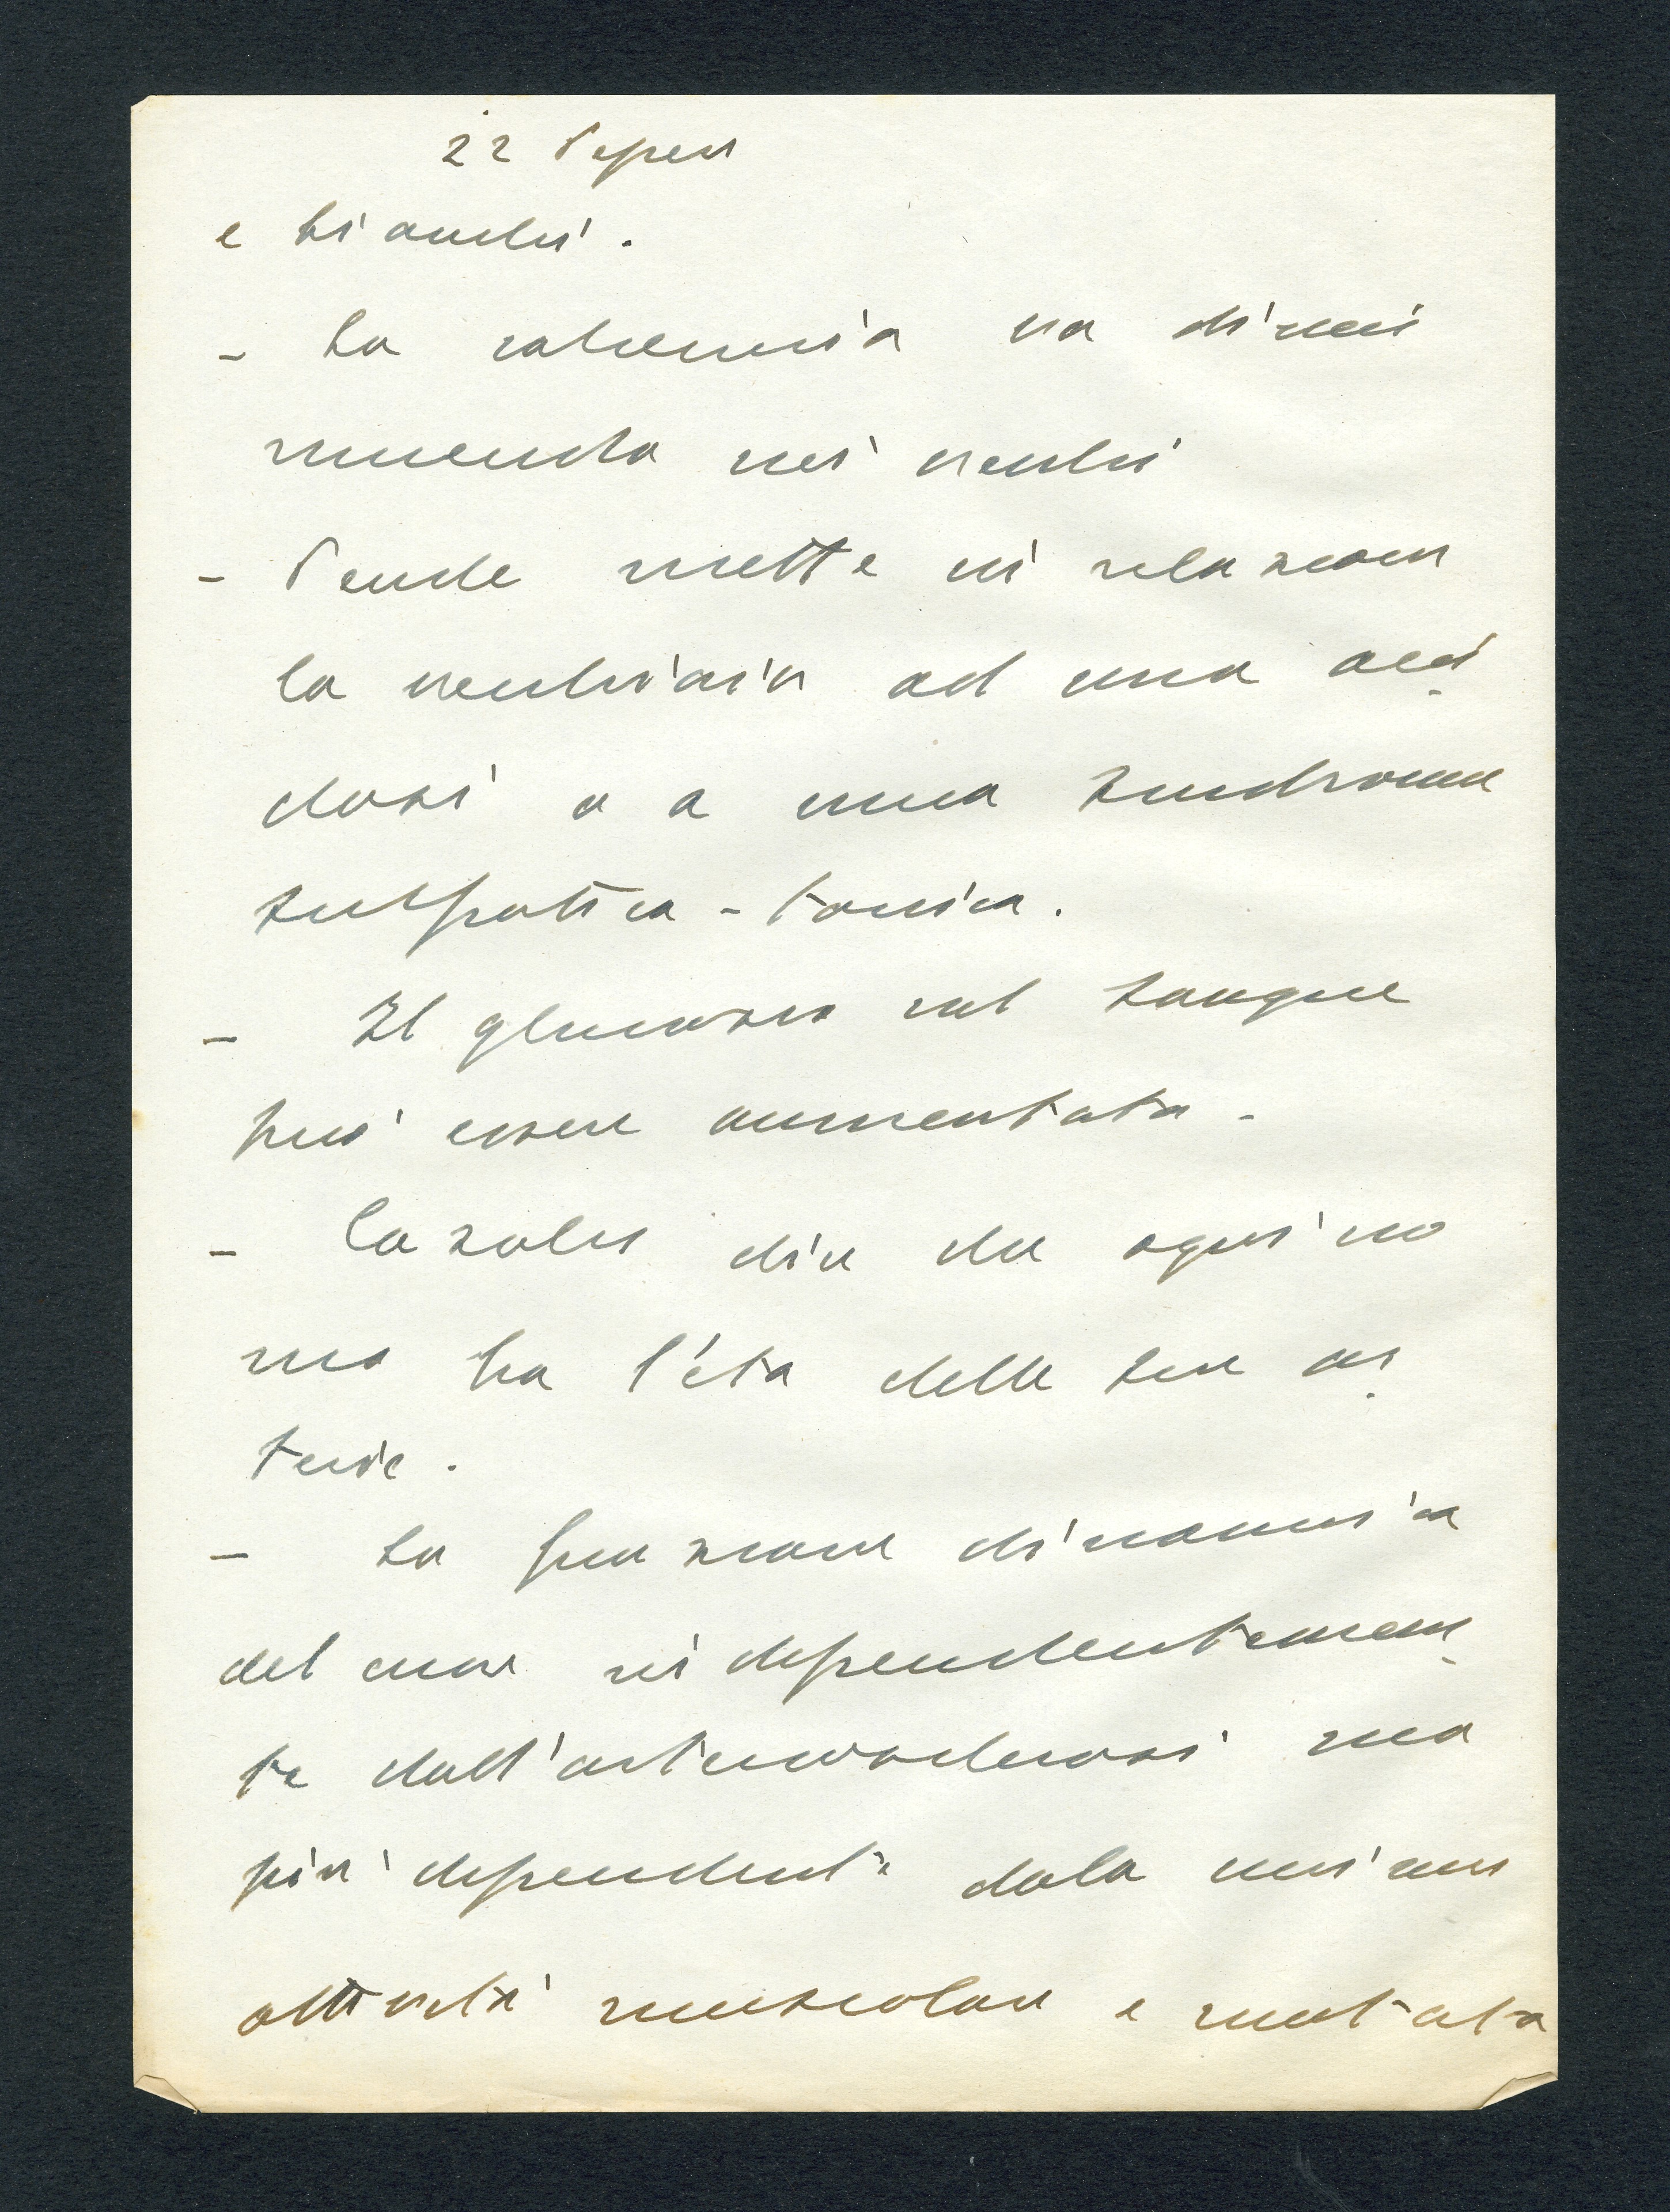 22
e bianchi.
- La calcemia va dimi
nuendo nei vecchi
- Pende mette in relazione
la vecchiaia ad una aci
dosi o a una sindrome
simpatica-tonica.
- Il glucosio nel sangue
può essere aumentato -
- Cazalis dice che ogni uo
mo ha l'età delle sue ar
terie.
- La funzione dinamica
del cuore indipendentemen
te dall'arteriosclerosi ma
più dipendente dalla
attività muscolare è mutata